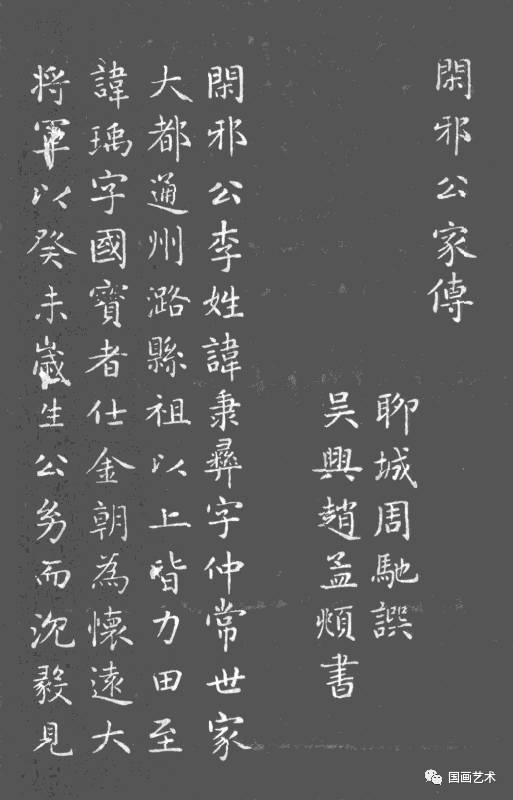 閑邪公家傳
聊城周馳譔
吴興趙孟頫書
閑邪公李姓諱秉彝字仲常世家
大都通州潞縣祖以上皆力田至
諱瑀字國寳者仕金朝為懷遠大
将軍以癸未嵗生公㓜而沉毅見
国画艺术